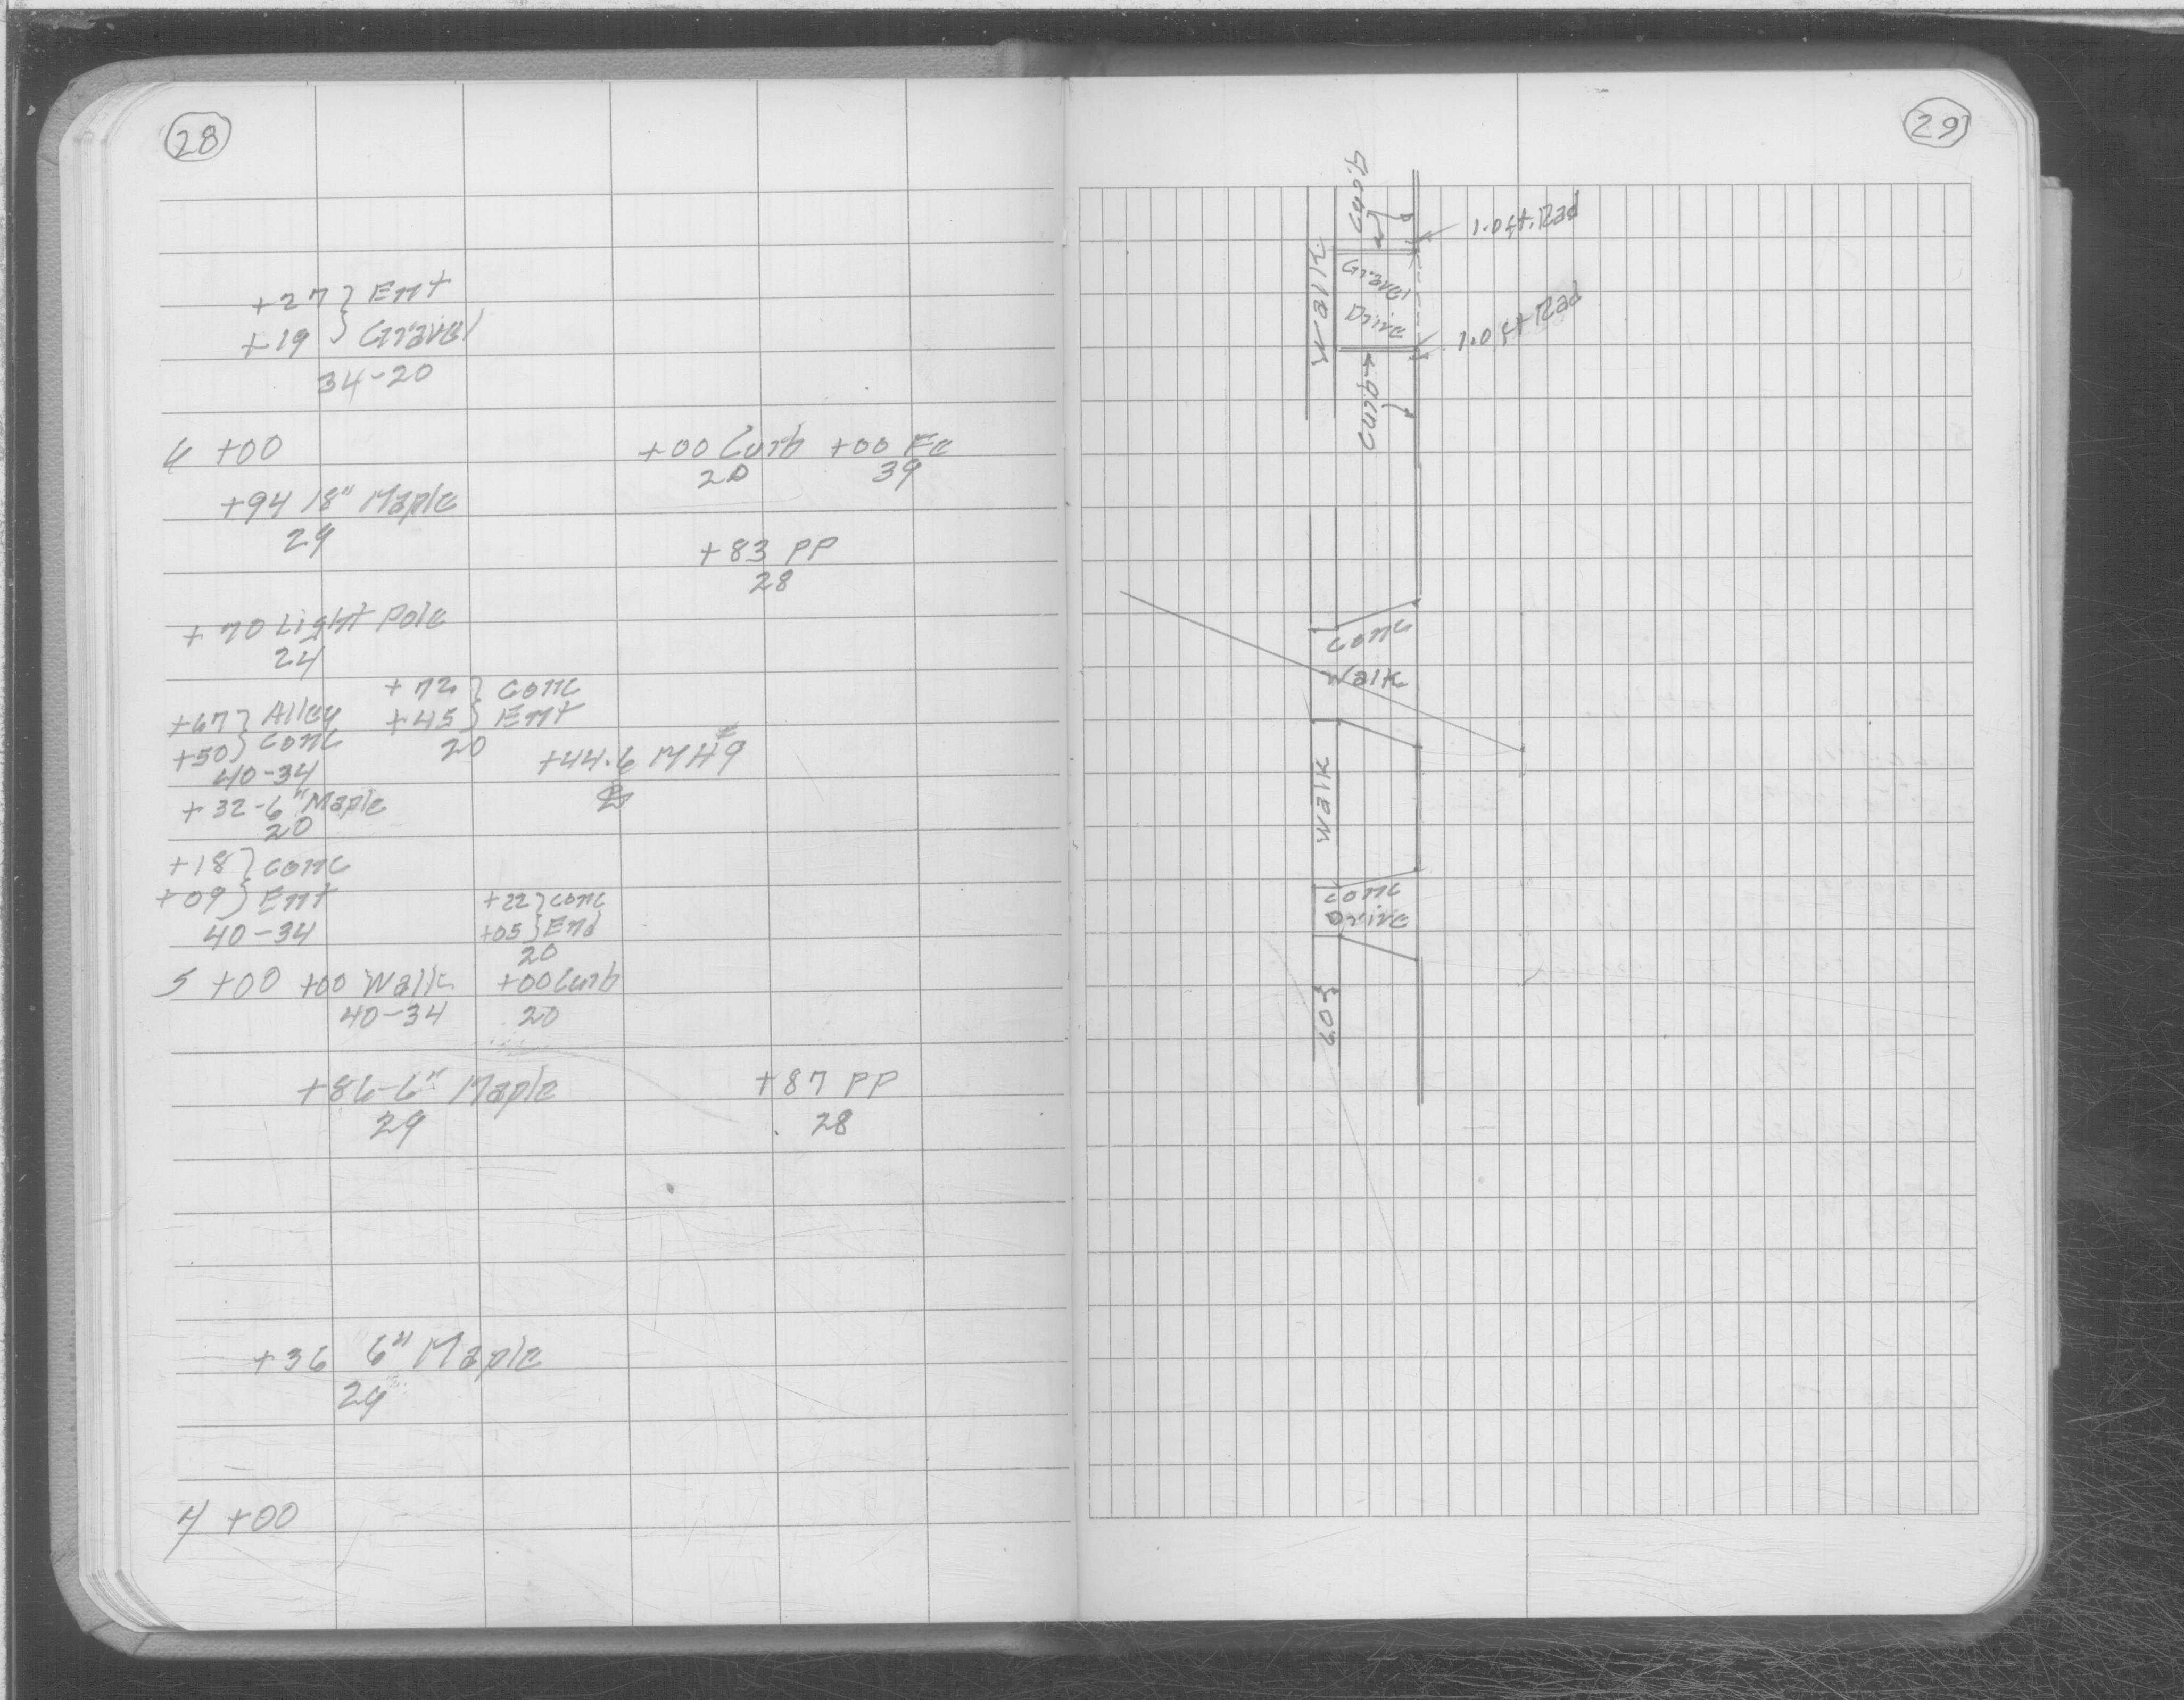 28
+27 } Ent
+19 } Gravel
34-20
6 +00 +00 Curb +00 Fc
20 39
+94 18" Maple
29
+83 PP
28
+70 Light Pole
24
+72 } Conc
+67 } Alley +45 } Ent
+50 } Conc 20
40-34 +44.6 MH #9
+32-6" Maple
20
+18 } Conc
+09 } Ent +22 } Conc
40-34 +05 } End
20
5 +00 +00 Walk +00 Curb
40-34 20
+86-6" Maple +87 PP
29 28
+36 6" Maple
29
4 +00
29
Curb
1.0 ft. Rad
Walk
Gravel
Drive
1.0 ft Rad
Curb
Conc
Walk
Walk
Conc
Drive